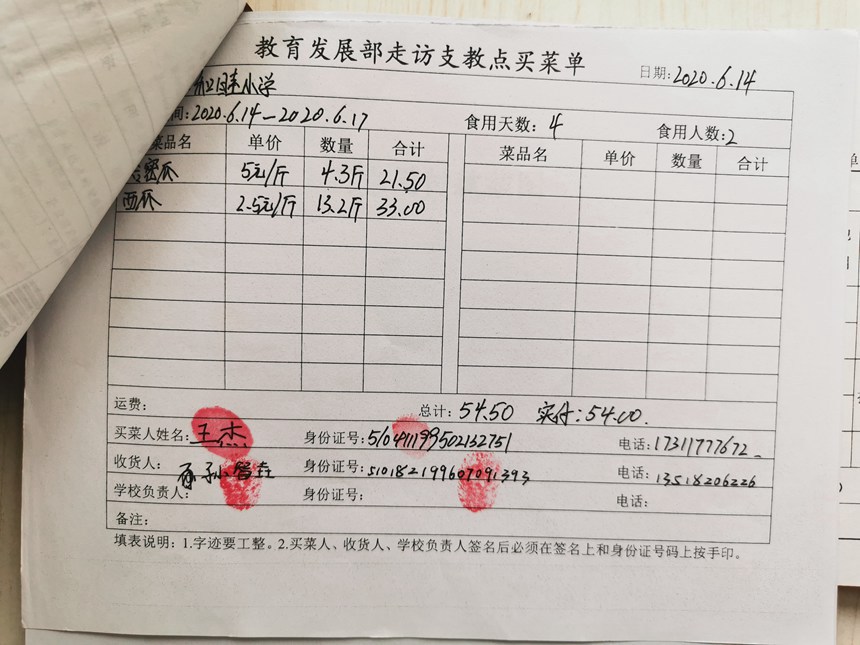 教育发展部走访支教点买菜单
日期:2020.6.14
小学
间:2020.6.14-2020.6.17 食用天数: 4 食用人数:2
菜品名 单价 数量 合计 菜品名 单价 数量 合计
密瓜 5元/斤 4.3斤 21.50
西瓜 2.5元/斤 13.2斤 33.00
运费: 总计: 54.50 实付:54.00.
买菜人姓名: 王杰 身份证号: 电话:17311777672
收货人: 身份证号:510182199607091393 电话: 13518206226
学校负责人: 身份证号: 电话:
备注:
填表说明: 1.字迹要工整。2.买菜人、收货人、学校负责人签名后必须在签名上和身份证号码上按手印。